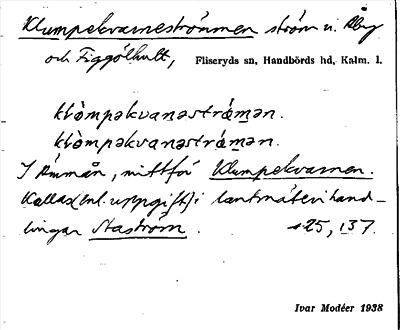 Klumpekvarnströmmen ström n. Åby
och Figgölhult, Fliseryds sn, Handbörds hd, Kalm. l.
klòmpəkvanəstrǿmən.
klòmpəkvanəstrǿmən.
I Ämmån, mittför Klumpekvarnen.
Kallas (enl. uppgift) i lantmäterihand-
lingar Staström. s 25, 137.
Ivar Modéer 1938